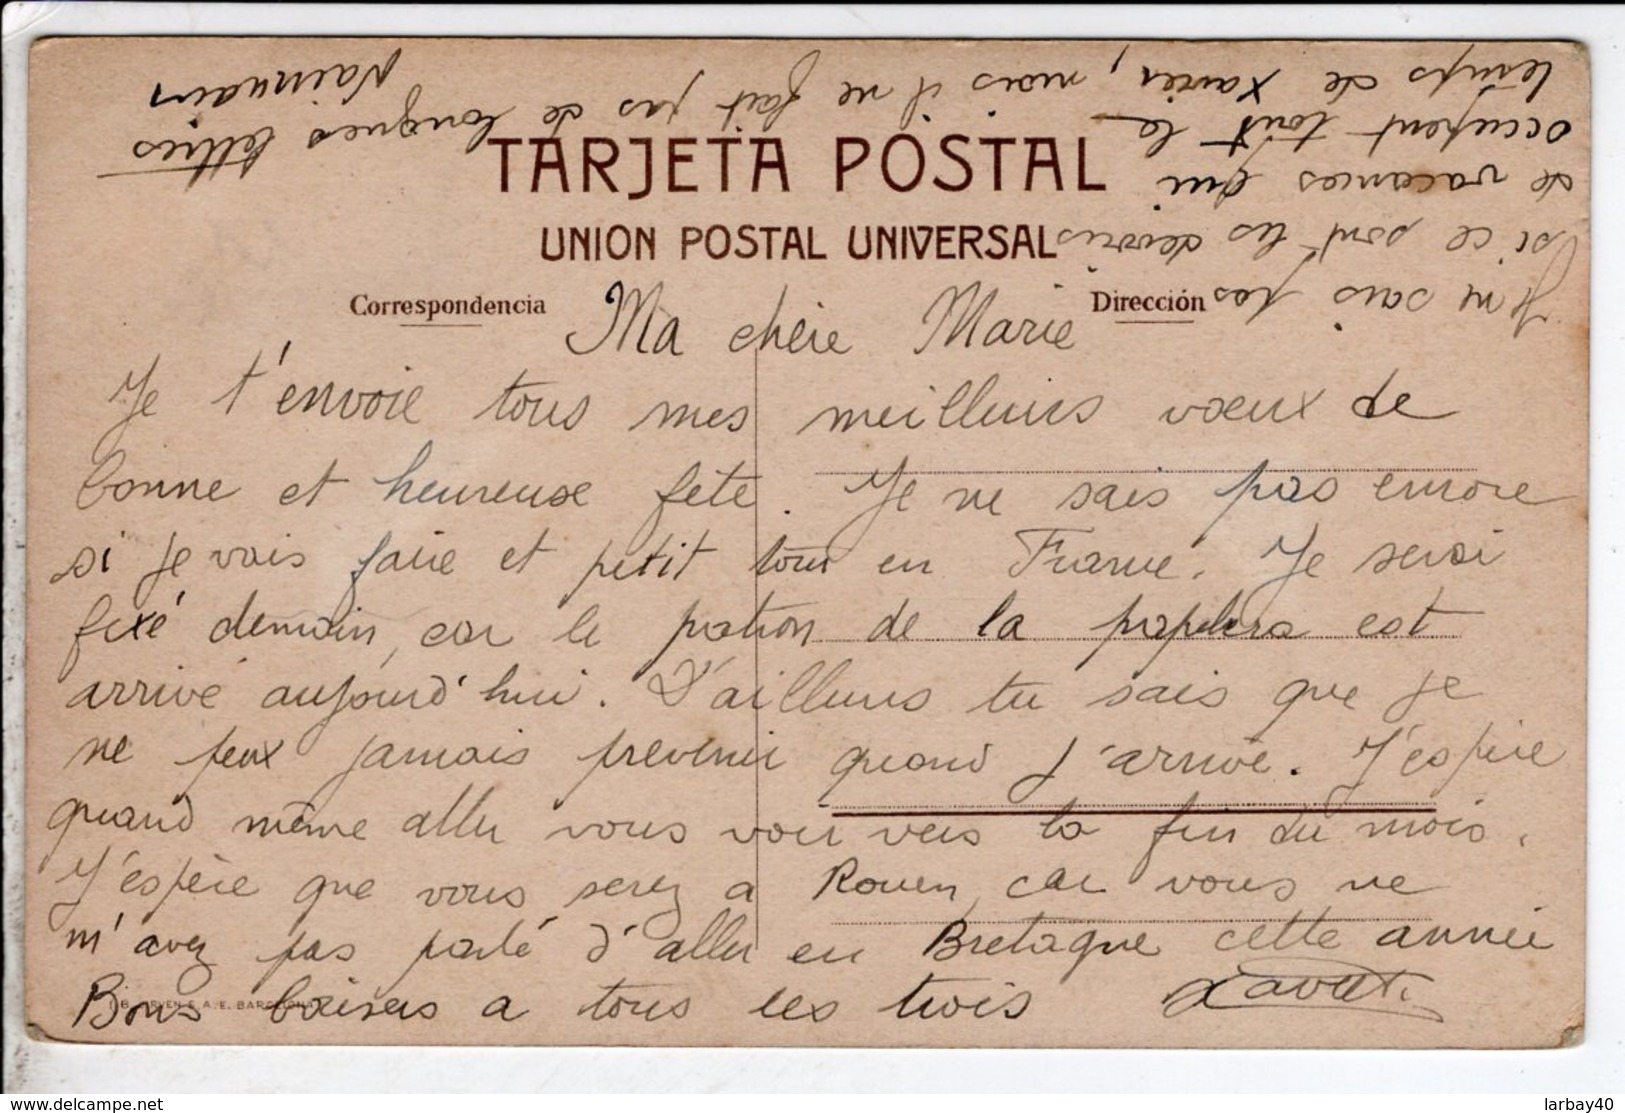 TARJETA POSTAL
UNION POSTAL UNIVERSAL
Correspondencia
Dirección
Ma chère Marie
Je t'envoie tous mes meilleurs vœux de
bonne et heureuse fête. Je ne sais pas encore
si je vais faire et petit tour en France. Je serai
fixé demain, car le patron de la est
arrivé aujourd'hui. D'ailleurs tu sais que je
ne peux jamais prevenir quand j'arrive. J'espère
quand même aller vous voir vers la fin du mois.
J'espère que vous serez a Rouen, car vous ne
m'avez pas parlé d'aller en Bretagne cette année
Bons baisers a tous les trois
Je ne sais pas
si ce sont les devoirs
de vacances qui
occupent tout le
temps de Xavier, mais il ne fait pas de longues lettres
LIB. E. A. E. BARCELONA
www.delcampe.net
larbay40